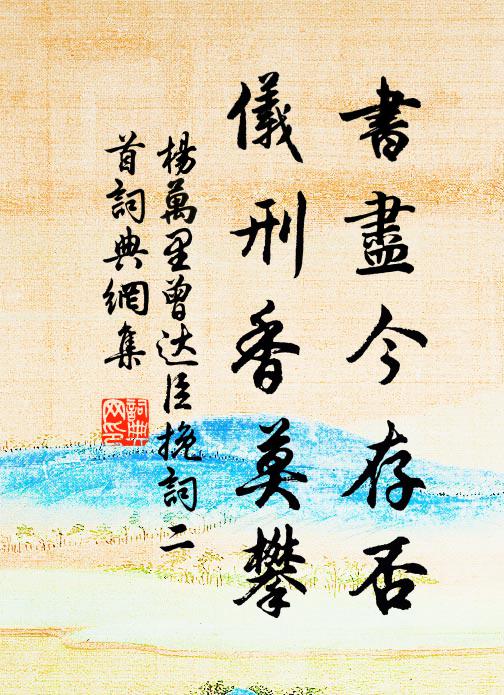 書盡今存否
儀刑香莫攀
楊萬里曾达臣挽詞二
首詞典網集
詞典
网印